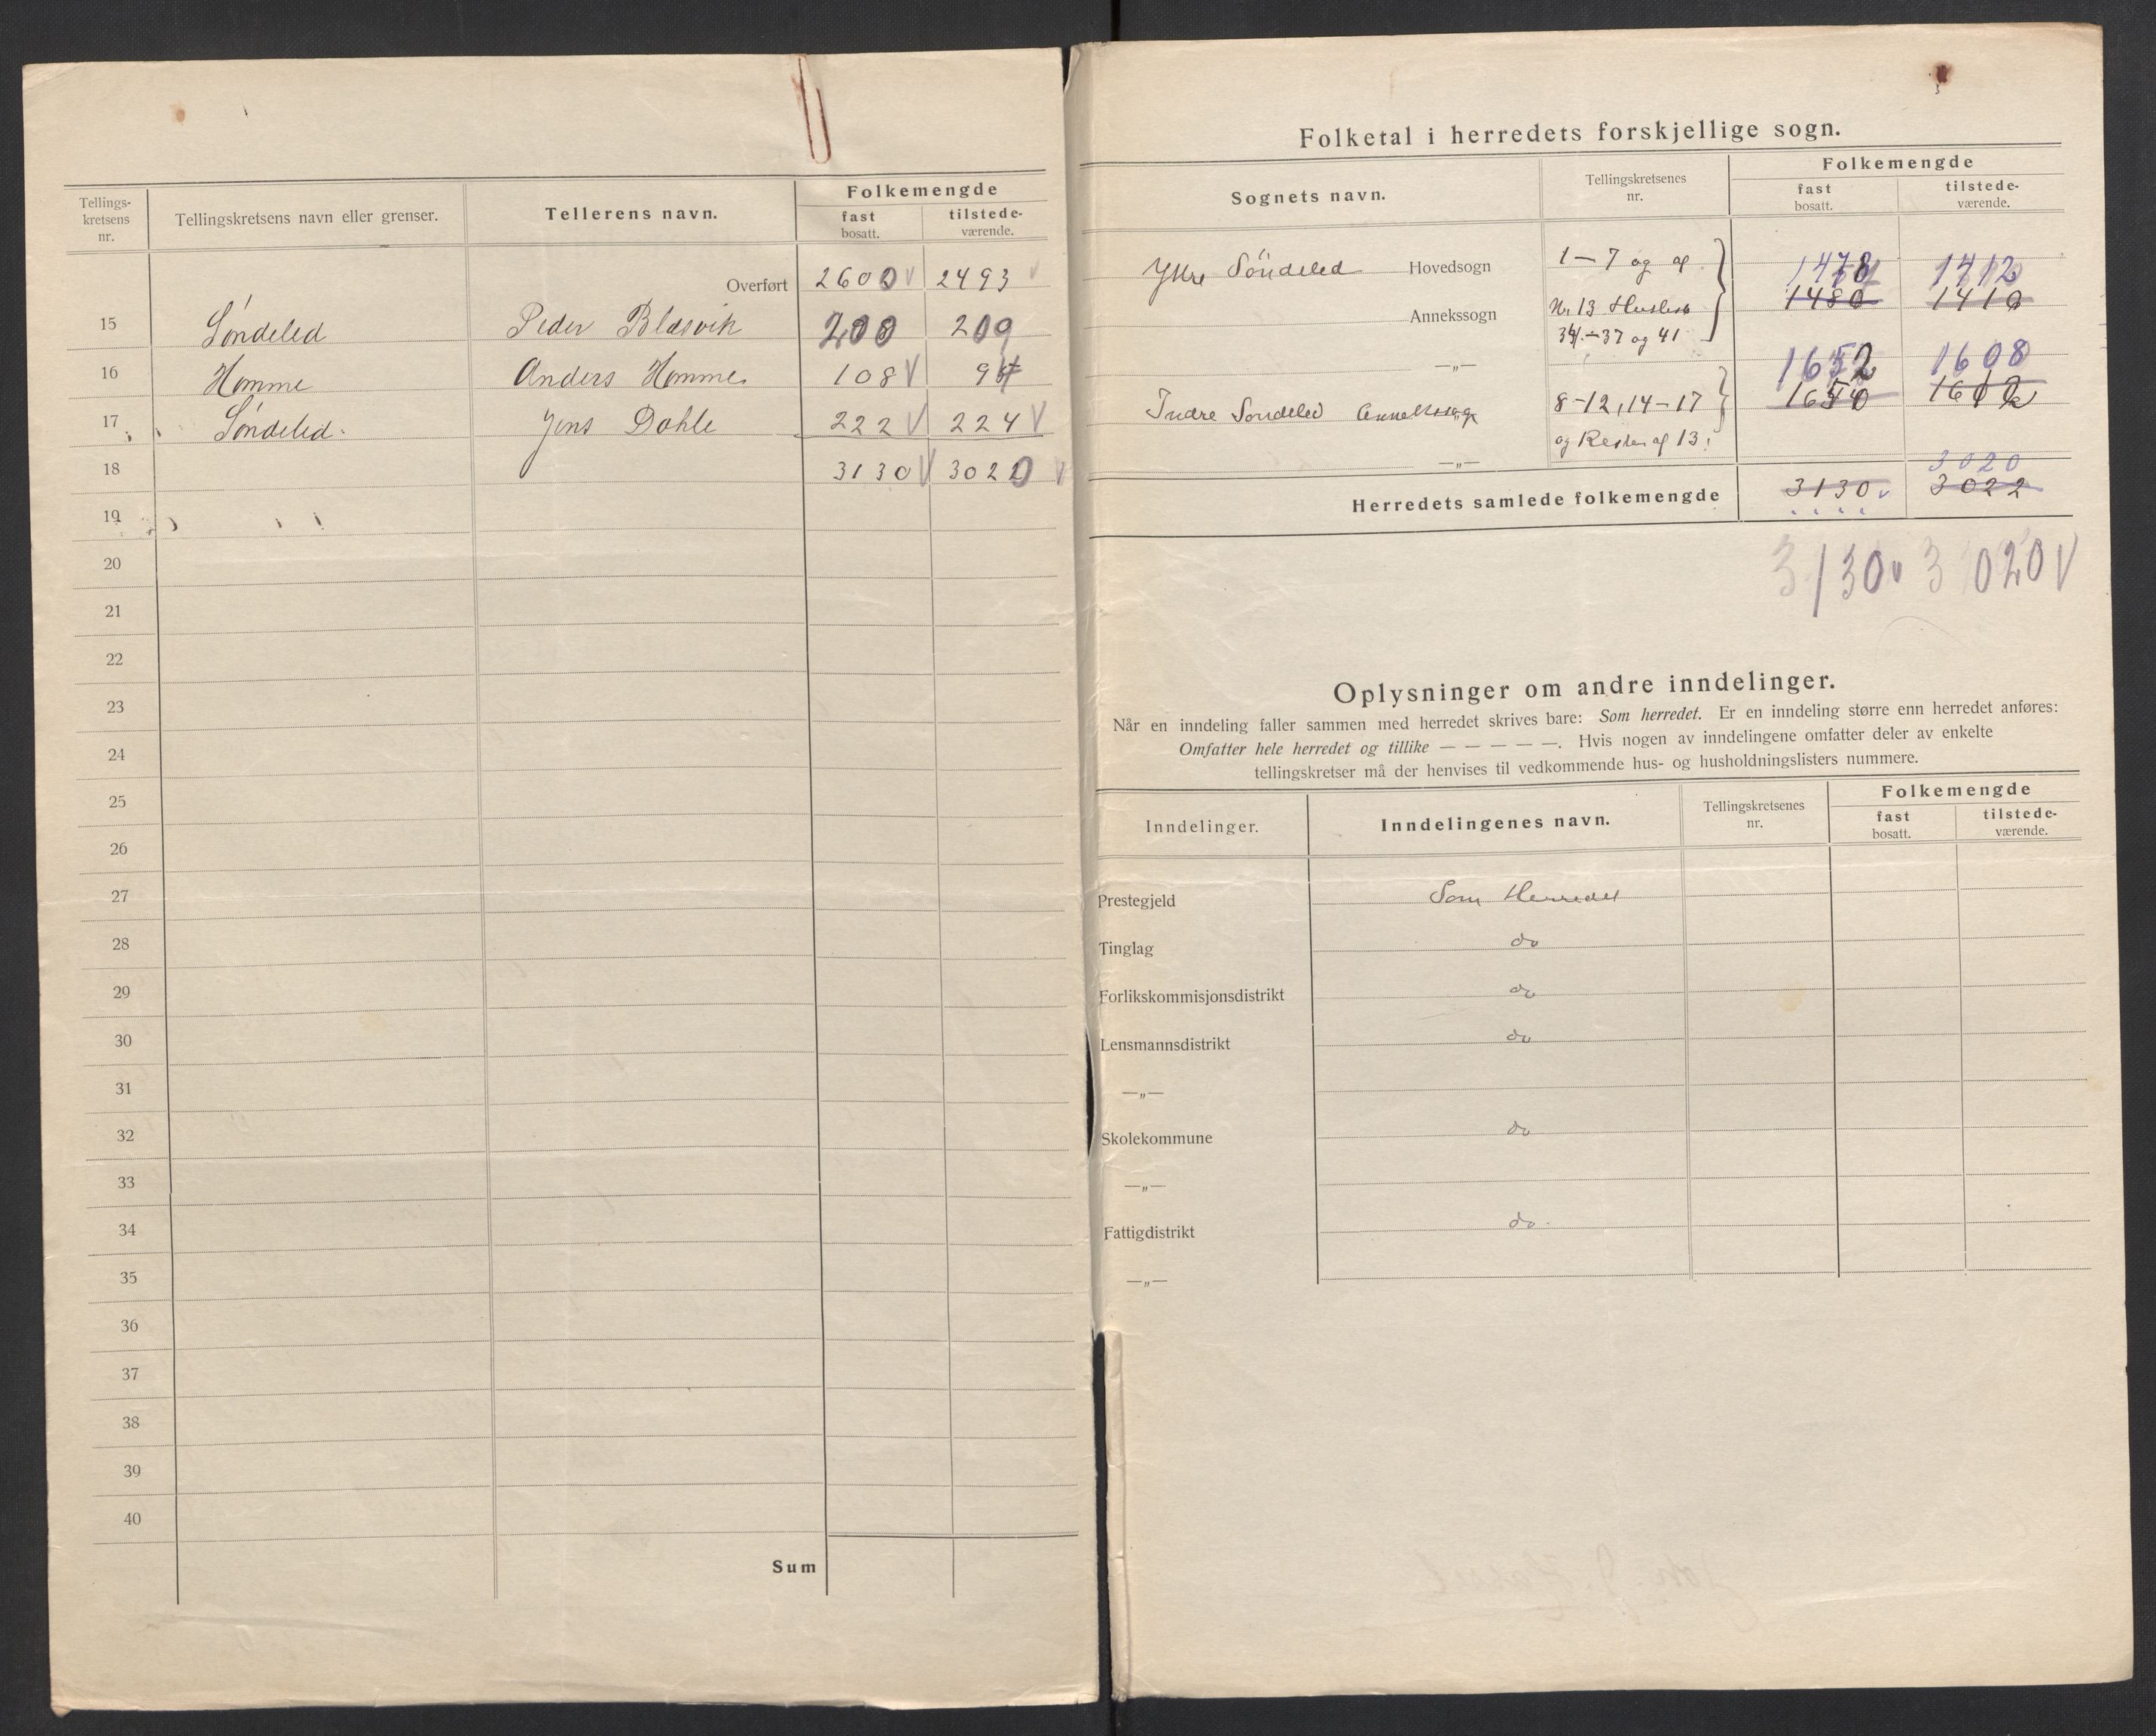 Tellings-
kretsens
nr.
Tellingskretsens navn eller grenser.
Tellerens navn.
Folkemengde
fast
bosatt.
tilstede-
værende.
Overført 2600 V 2493 V
15 Søndeled Peder Blasvik 200 209
16 Homme Anders Homme 108 V 94
17 Søndeled. Jens Dahle 222 V 224 V
18 3130 V 3020 V
19
20
21
22
23
24
25
26
27
28
29
30
31
32
33
34
35
36
37
38
39
40
Sum
Folketal i herredets forskjellige sogn.
Sognets navn.
Tellingskretsenes
nr.
Folkemengde
fast
bosatt.
tilstede-
værende.
Ytre Söndeled Hovedsogn 1–7 og af 1478 1412
Annekssogn Nr. 13 1480 1410
34–37 og 41
—„— 1652 1608
Indre Søndeled Annekssogn 8–12, 14–17 1650
og Resten af 13.
—„—
3020
Herredets samlede folkemengde 3130 v 3022
3130 v 3020 V
Oplysninger om andre inndelinger.
Når en inndeling faller sammen med herredet skrives bare: Som herredet. Er en inndeling større enn herredet anføres:
Omfatter hele herredet og tillike — — — — —. Hvis nogen av inndelingene omfatter deler av enkelte
tellingskretser må der henvises til vedkommende hus- og husholdningslisters nummere.
Inndelinger.
Inndelingenes navn.
Tellingskretsenes
nr.
Folkemengde
fast
bosatt.
tilstede-
værende.
Prestegjeld Som Herredet
Tinglag do
Forlikskommisjonsdistrikt do
Lensmannsdistrikt do
—„—
Skolekommune do
—„—
Fattigdistrikt do.
—„—